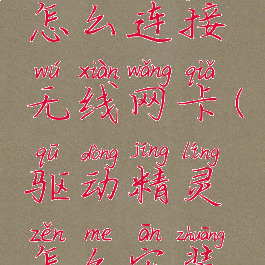 怎么连接
wú xiàn wǎng qiǎ
无线网卡(
qū dòng jīng líng
驱动精灵
zěn me ān zhuāng
怎么安装